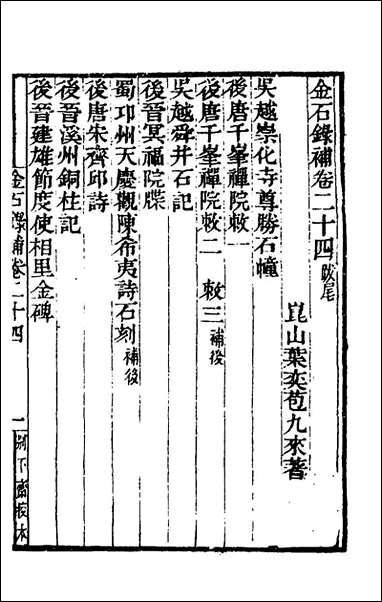 金石錄補卷二十四 跋尾
崑山葉奕苞九來著
吳越崇化寺尊勝石幢
後唐千峯禪院敕一
後唐千峯禪院敕二 敕三 補後
吳越舜井石記
後晉冥福院牒
蜀邛州天慶觀陳希夷詩石刻 補後
後唐朱齊邱詩
後晉溪州銅柱記
後晉建雄節度使相里金碑
金石錄補卷二十四 一 別下齋校本